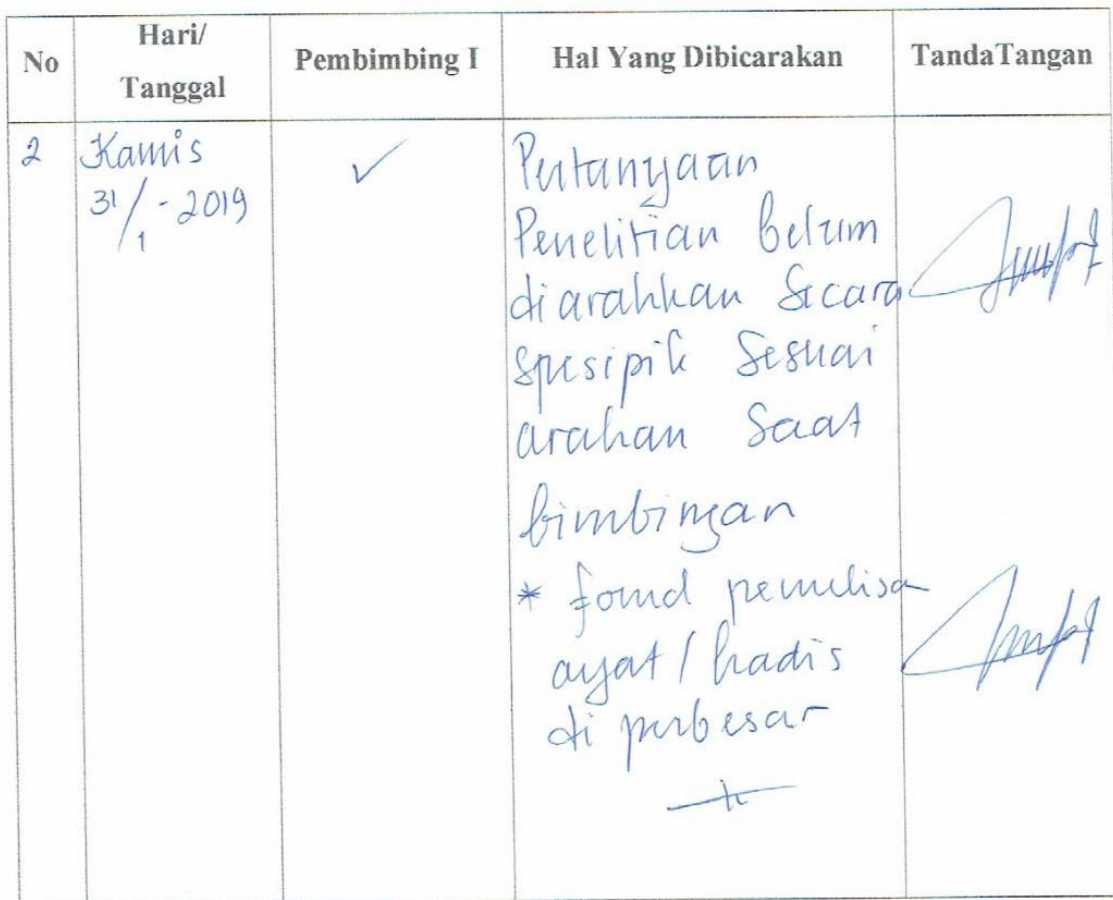 No
Hari/
Tanggal
Pembimbing I
Hal Yang Dibicarakan
TandaTangan
2
Kamis
31/1 - 2019
✓
Pertanyaan
Penelitian belum
diarahkan Secara
spesipik Sesuai
arahan Saat
bimbingan
* fond penulisa
ayat / hadis
di perbesar